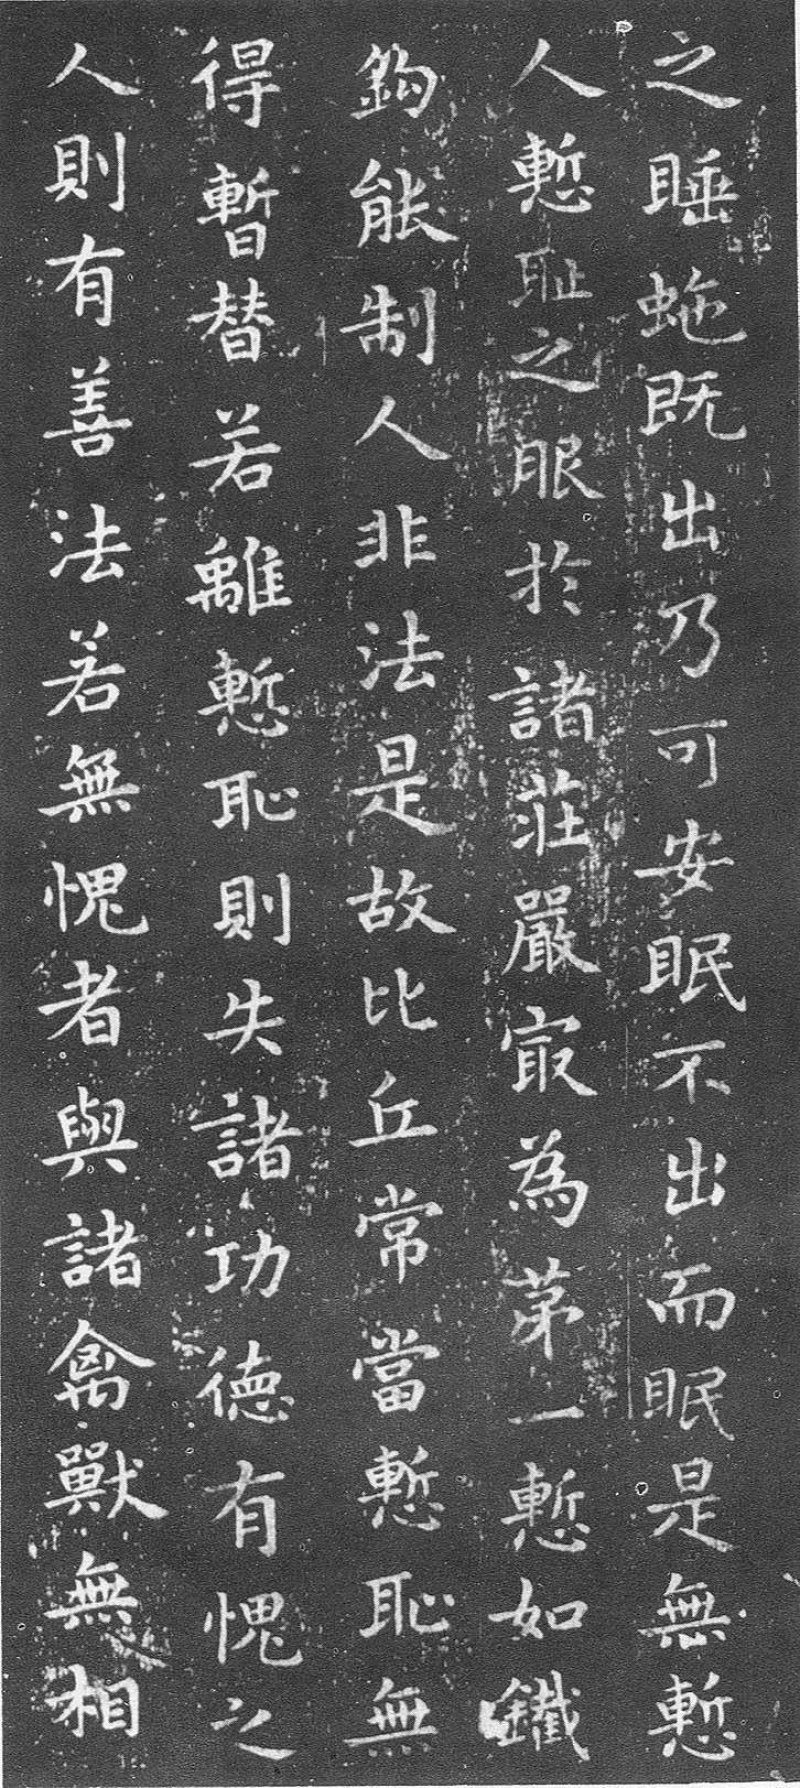 之睡虵既出乃可安眠不出而眠是無慙
人慙耻之服於諸莊嚴冣為苐一慙如鐵
鈎能制人非法是故比丘常當慙恥無
得暫替若離慙恥則失諸功徳有愧之
人則有善法若無愧者與諸禽獸無相